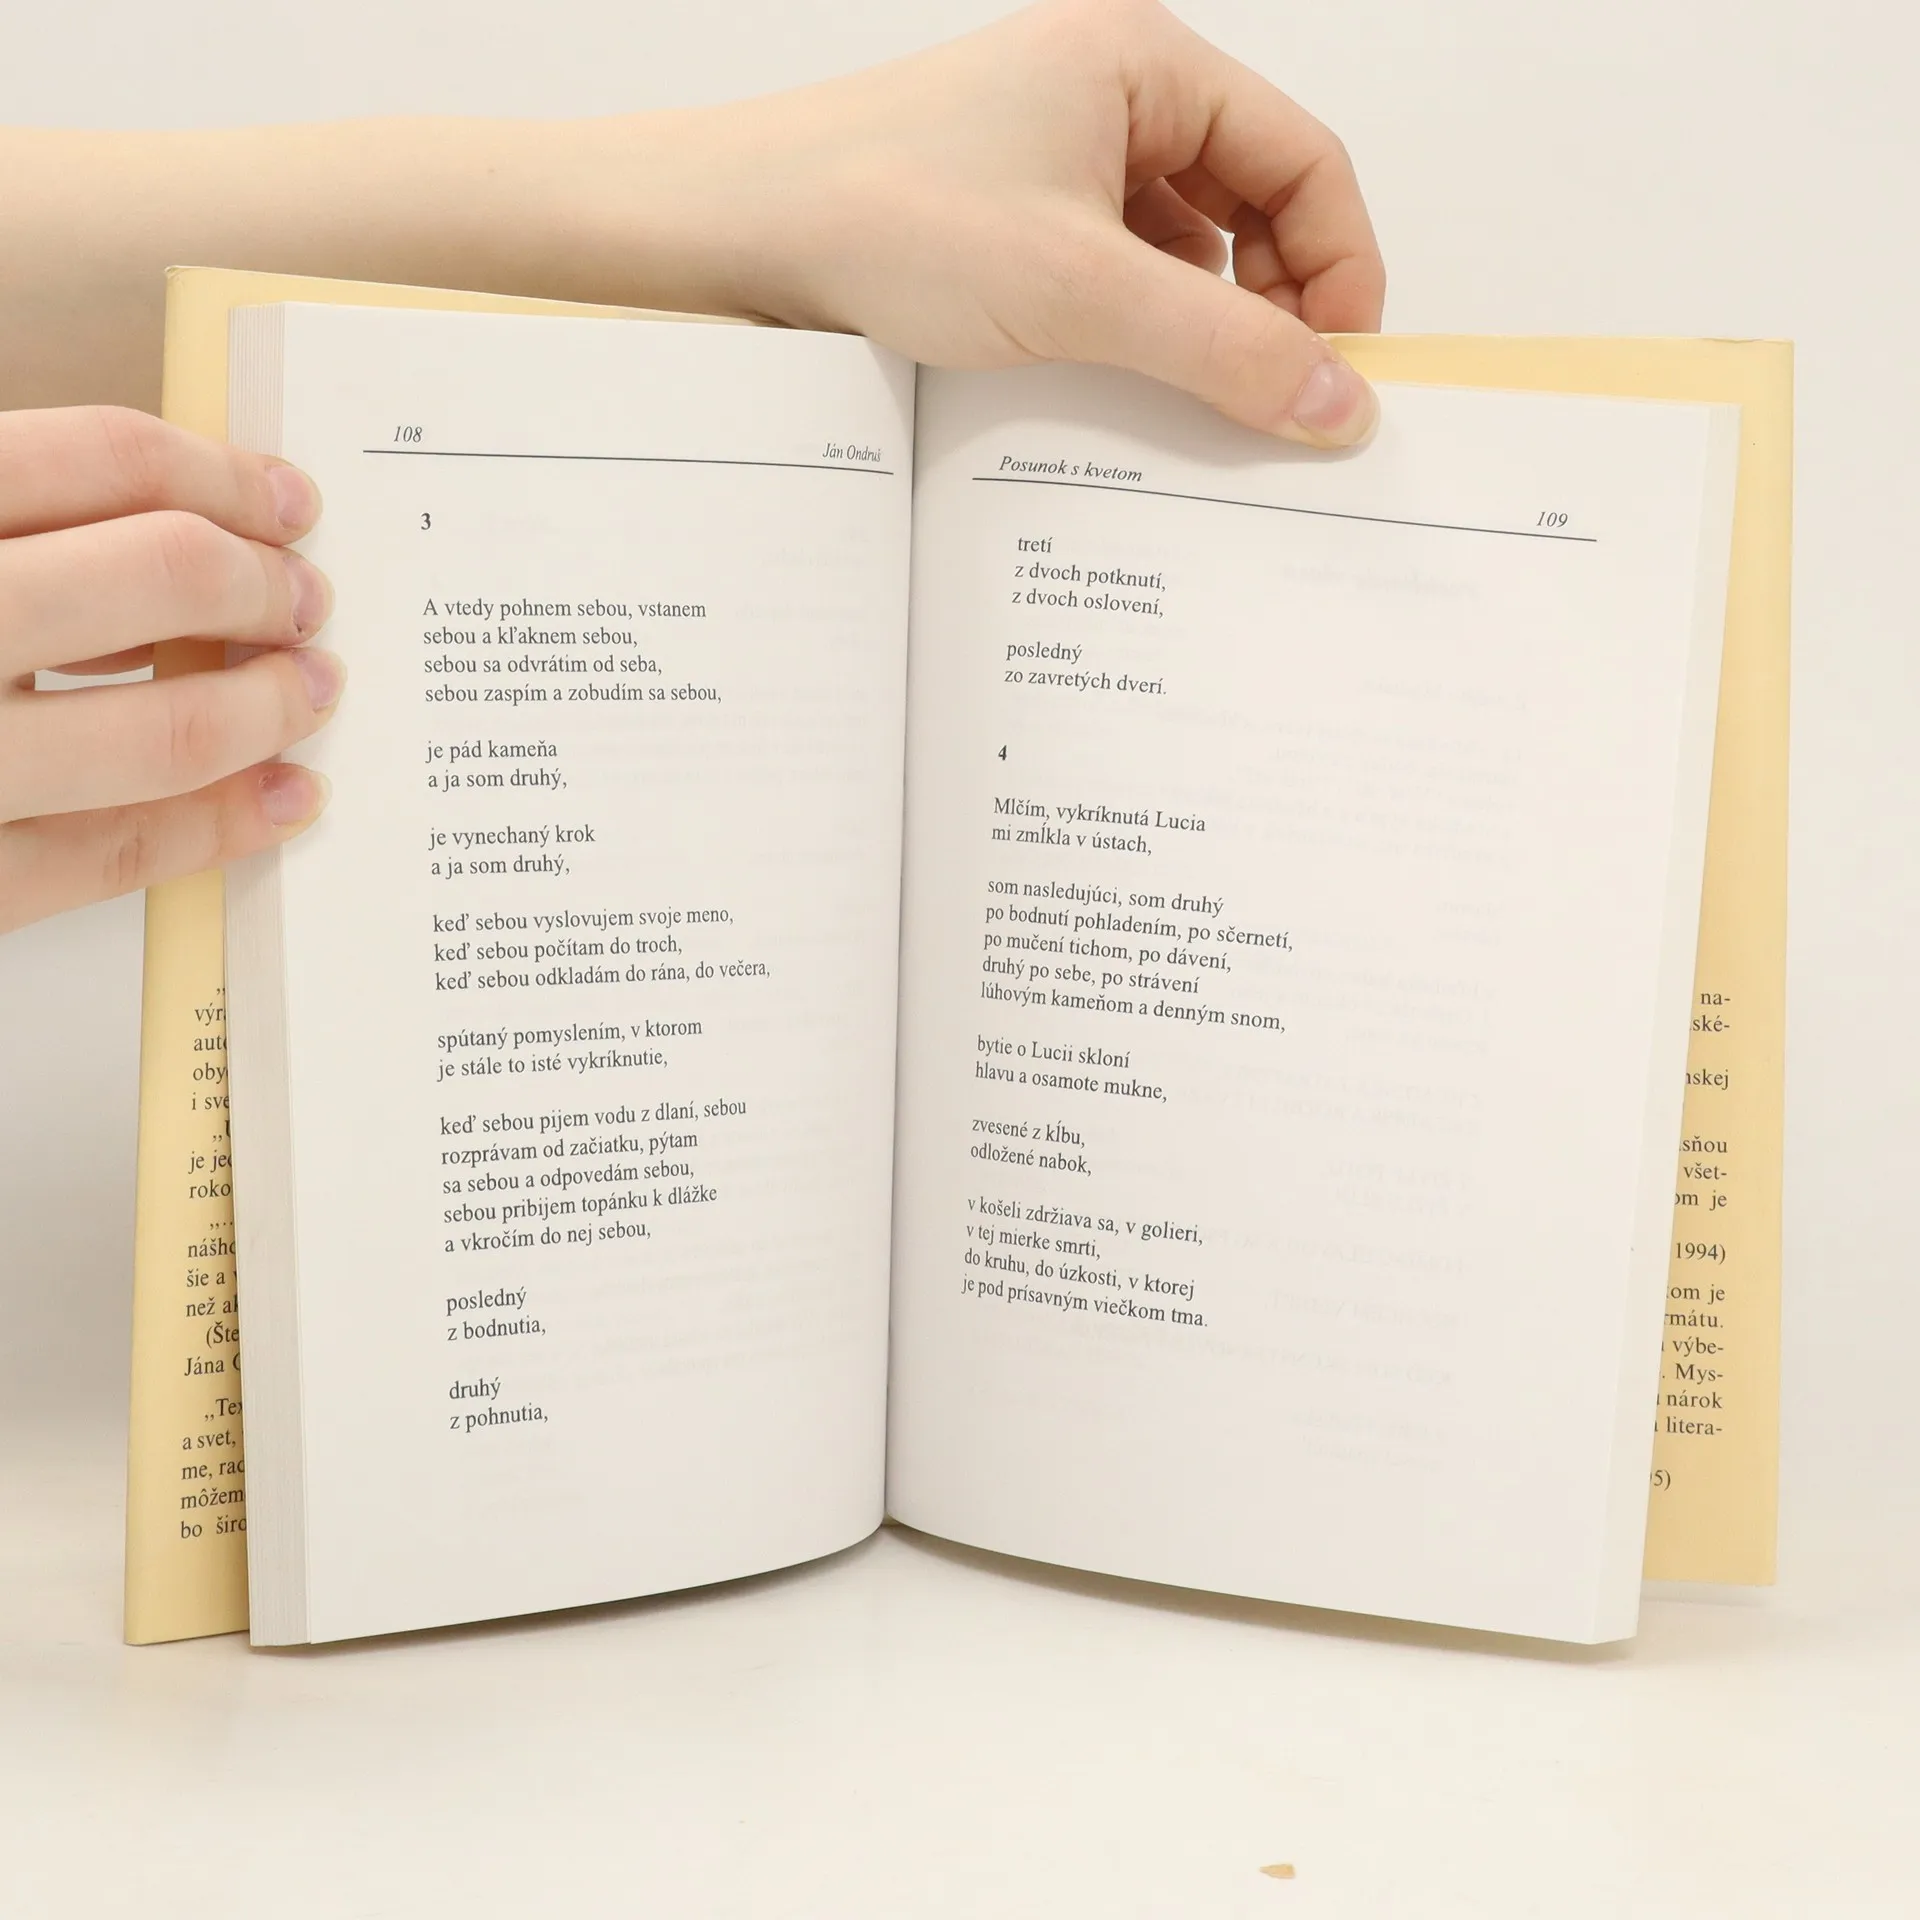 108
Ján Ondruš
3
A vtedy pohnem sebou, vstanem
sebou a kľaknem sebou,
sebou sa odvrátim od seba,
sebou zaspím a zobudím sa sebou,
je pád kameňa
a ja som druhý,
je vynechaný krok
a ja som druhý,
keď sebou vyslovujem svoje meno,
keď sebou počítam do troch,
keď sebou odkladám do rána, do večera,
spútaný pomyslením, v ktorom
je stále to isté vykríknutie,
keď sebou pijem vodu z dlaní, sebou
rozprávam od začiatku, pýtam
sa sebou a odpovedám sebou,
sebou pribijem topánku k dlážke
a vkročím do nej sebou,
posledný
z bodnutia,
druhý
z pohnutia,
Posunok s kvetom
109
tretí
z dvoch potknutí,
z dvoch oslovení,
posledný
zo zavretých dverí.
4
Mlčím, vykríknutá Lucia
mi zmĺkla v ústach,
som nasledujúci, som druhý
po bodnutí pohladením, po sčernetí,
po mučení tichom, po dávení,
druhý po sebe, po strávení
lúhovým kameňom a denným snom,
bytie o Lucii skloní
hlavu a osamote mukne,
zvesené z kĺbu,
odložené nabok,
v košeli zdržiava sa, v golieri,
v tej mierke smrti,
do kruhu, do úzkosti, v ktorej
je pod prísavným viečkom tma.
je
roko
šie a
než
Jána
a svet,
me,
bo
na-
všet-
je
1994)
je
výbe-
Mys-
nárok
litera-